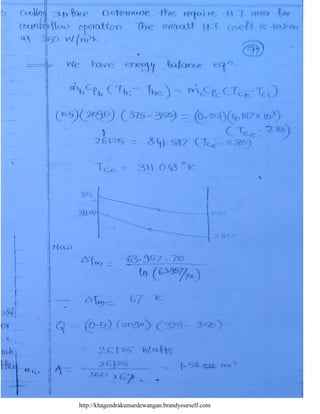 cooling surface. Determine the require H.T area for
counterflow operation. The overall H.T coeff. is taken
as 250 W/m²k.
(94)
We have energy balance eqn.
∴ ṁₕCpₕ (Tₕᵢ - Tₕₑ) = ṁ꜀Cp꜀ (Tcₑ - Tcᵢ)
(0.5)(2090) (375-350) = (0.201)(4.187×10³)
(Tcₑ - 280)
26125 = 841.587 (Tcₑ - 280)
∴ Tcₑ = 311.043 °K
375
311.04
350
280
Now
ΔTm = 63.957-70
ln (63.957/70)
ΔTm = 67 K
Q = (0.5) (2090) (375 - 350)
= 26125 Watts.
A = 26125 = 1.56 m²
250 × 67
http://khagendrakumardewangan.brandyourself.com